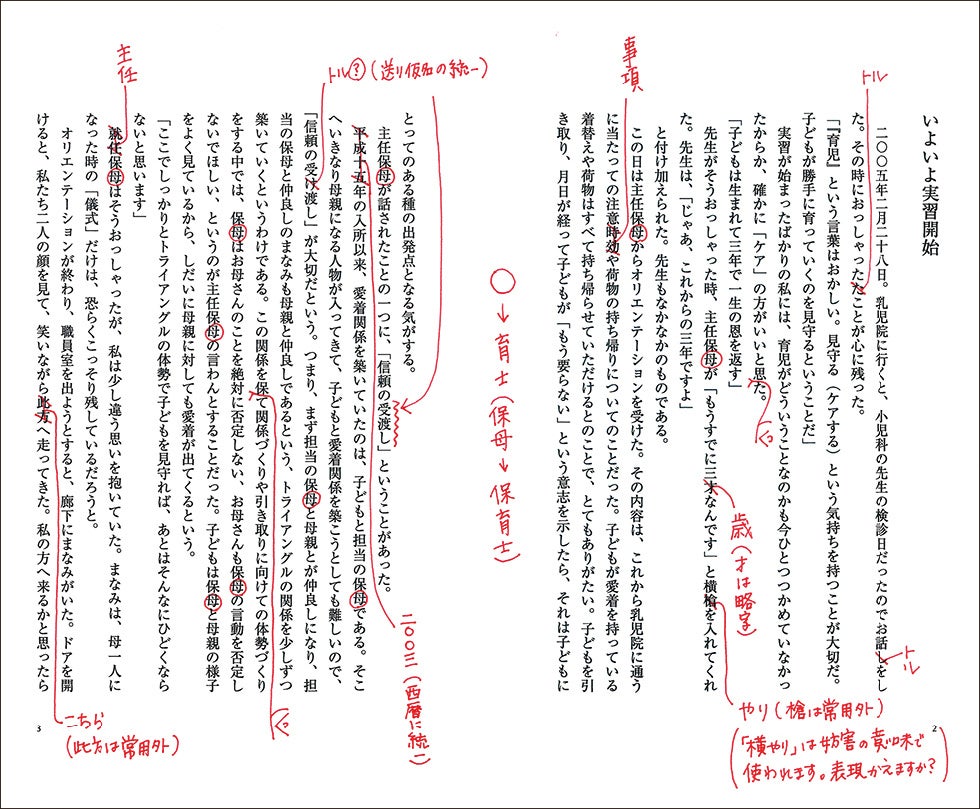 いよいよ実習開始
二〇〇五年二月二十八日。乳児院に行くと、小児科の先生の検診日だったのでお話しをし
た。その時におっしゃったたことが心に残った。
「『育児』という言葉はおかしい。見守る（ケアする）という気持ちを持つことが大切だ。
子どもが勝手に育っていくのを見守るということだ」
実習が始まったばかりの私には、育児がどういうことなのかも今ひとつつかめていなかっ
たからか、確かに「ケア」の方がいいと思た。
「子どもは生まれて三年で一生の恩を返す」
先生がそうおっしゃった時、主任保母が「もうすでに三才なんです」と横槍を入れてくれ
た。先生は、「じゃあ、これからの三年ですよ」
と付け加えられた。先生もなかなかのものである。
この日は主任保母からオリエンテーションを受けた。その内容は、これから乳児院に通う
に当たっての注意時効や荷物の持ち帰りについてのことだった。子どもが愛着を持っている
着替えや荷物はすべて持ち帰らせていただけるとのことで、とてもありがたい。子どもを引
き取り、月日が経って子どもが「もう要らない」という意志を示したら、それは子どもに
2
トル
トル
事項
っ
歳（才は略字）
やり（槍は常用外）
（「横やり」は妨害の意味で
使われます。表現かえますか？）
○→育士（保母→保育士）
とってのある種の出発点となる気がする。
主任保母が話されたことの一つに、「信頼の受渡し」ということがあった。
平成十五年の入所以来、愛着関係を築いていたのは、子どもと担当の保母である。そこ
へいきなり母親になる人物が入ってきて、子どもと愛着関係を築こうとしても難しいので、
「信頼の受け渡し」が大切だという。つまり、まず担当の保母と母親とが仲良しになり、担
当の保母と仲良しのまなみも母親と仲良しであるという、トライアングルの関係を少しずつ
築いていくというわけである。この関係を保て関係づくりや引き取りに向けての体勢づくり
をする中では、保母はお母さんのことを絶対に否定しない、お母さんも保母の言動を否定し
ないでほしい、というのが主任保母の言わんとすることだった。子どもは保母と母親の様子
をよく見ているから、しだいに母親に対しても愛着が出てくるという。
「ここでしっかりとトライアングルの体勢で子どもを見守れば、あとはそんなにひどくなら
ないと思います」
就任保母はそうおっしゃったが、私は少し違う思いを抱いていた。まなみは、母一人に
なった時の「儀式」だけは、恐らくこっそり残しているだろうと。
オリエンテーションが終わり、職員室を出ようとすると、廊下にまなみがいた。ドアを開
けると、私たち二人の顔を見て、笑いながら此方へ走ってきた。私の方へ来るかと思ったら
3
トル？（送り仮名の統一）
主任
二〇〇三（西暦に統一）
っ
こちら
（此方は常用外）